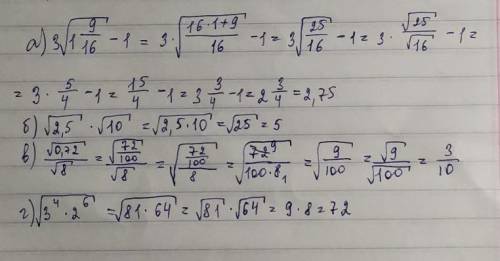 а) 3√(1 9/16) − 1 = 3 · √((16·1+9)/16) − 1 = 3√(25/16) − 1 = 3 · √25/√16 − 1 =
= 3 · 5/4 − 1 = 15/4 − 1 = 3 3/4 − 1 = 2 3/4 = 2,75
б) √2,5 · √10 = √(2,5·10) = √25 = 5
в) √0,72/√8 = √(72/100)/√8 = √((72/100)/8) = √(72⁹/(100·8₁)) = √(9/100) = √9/√100 = 3/10
г) √(3⁴ · 2⁶) = √(81 · 64) = √81 · √64 = 9 · 8 = 72